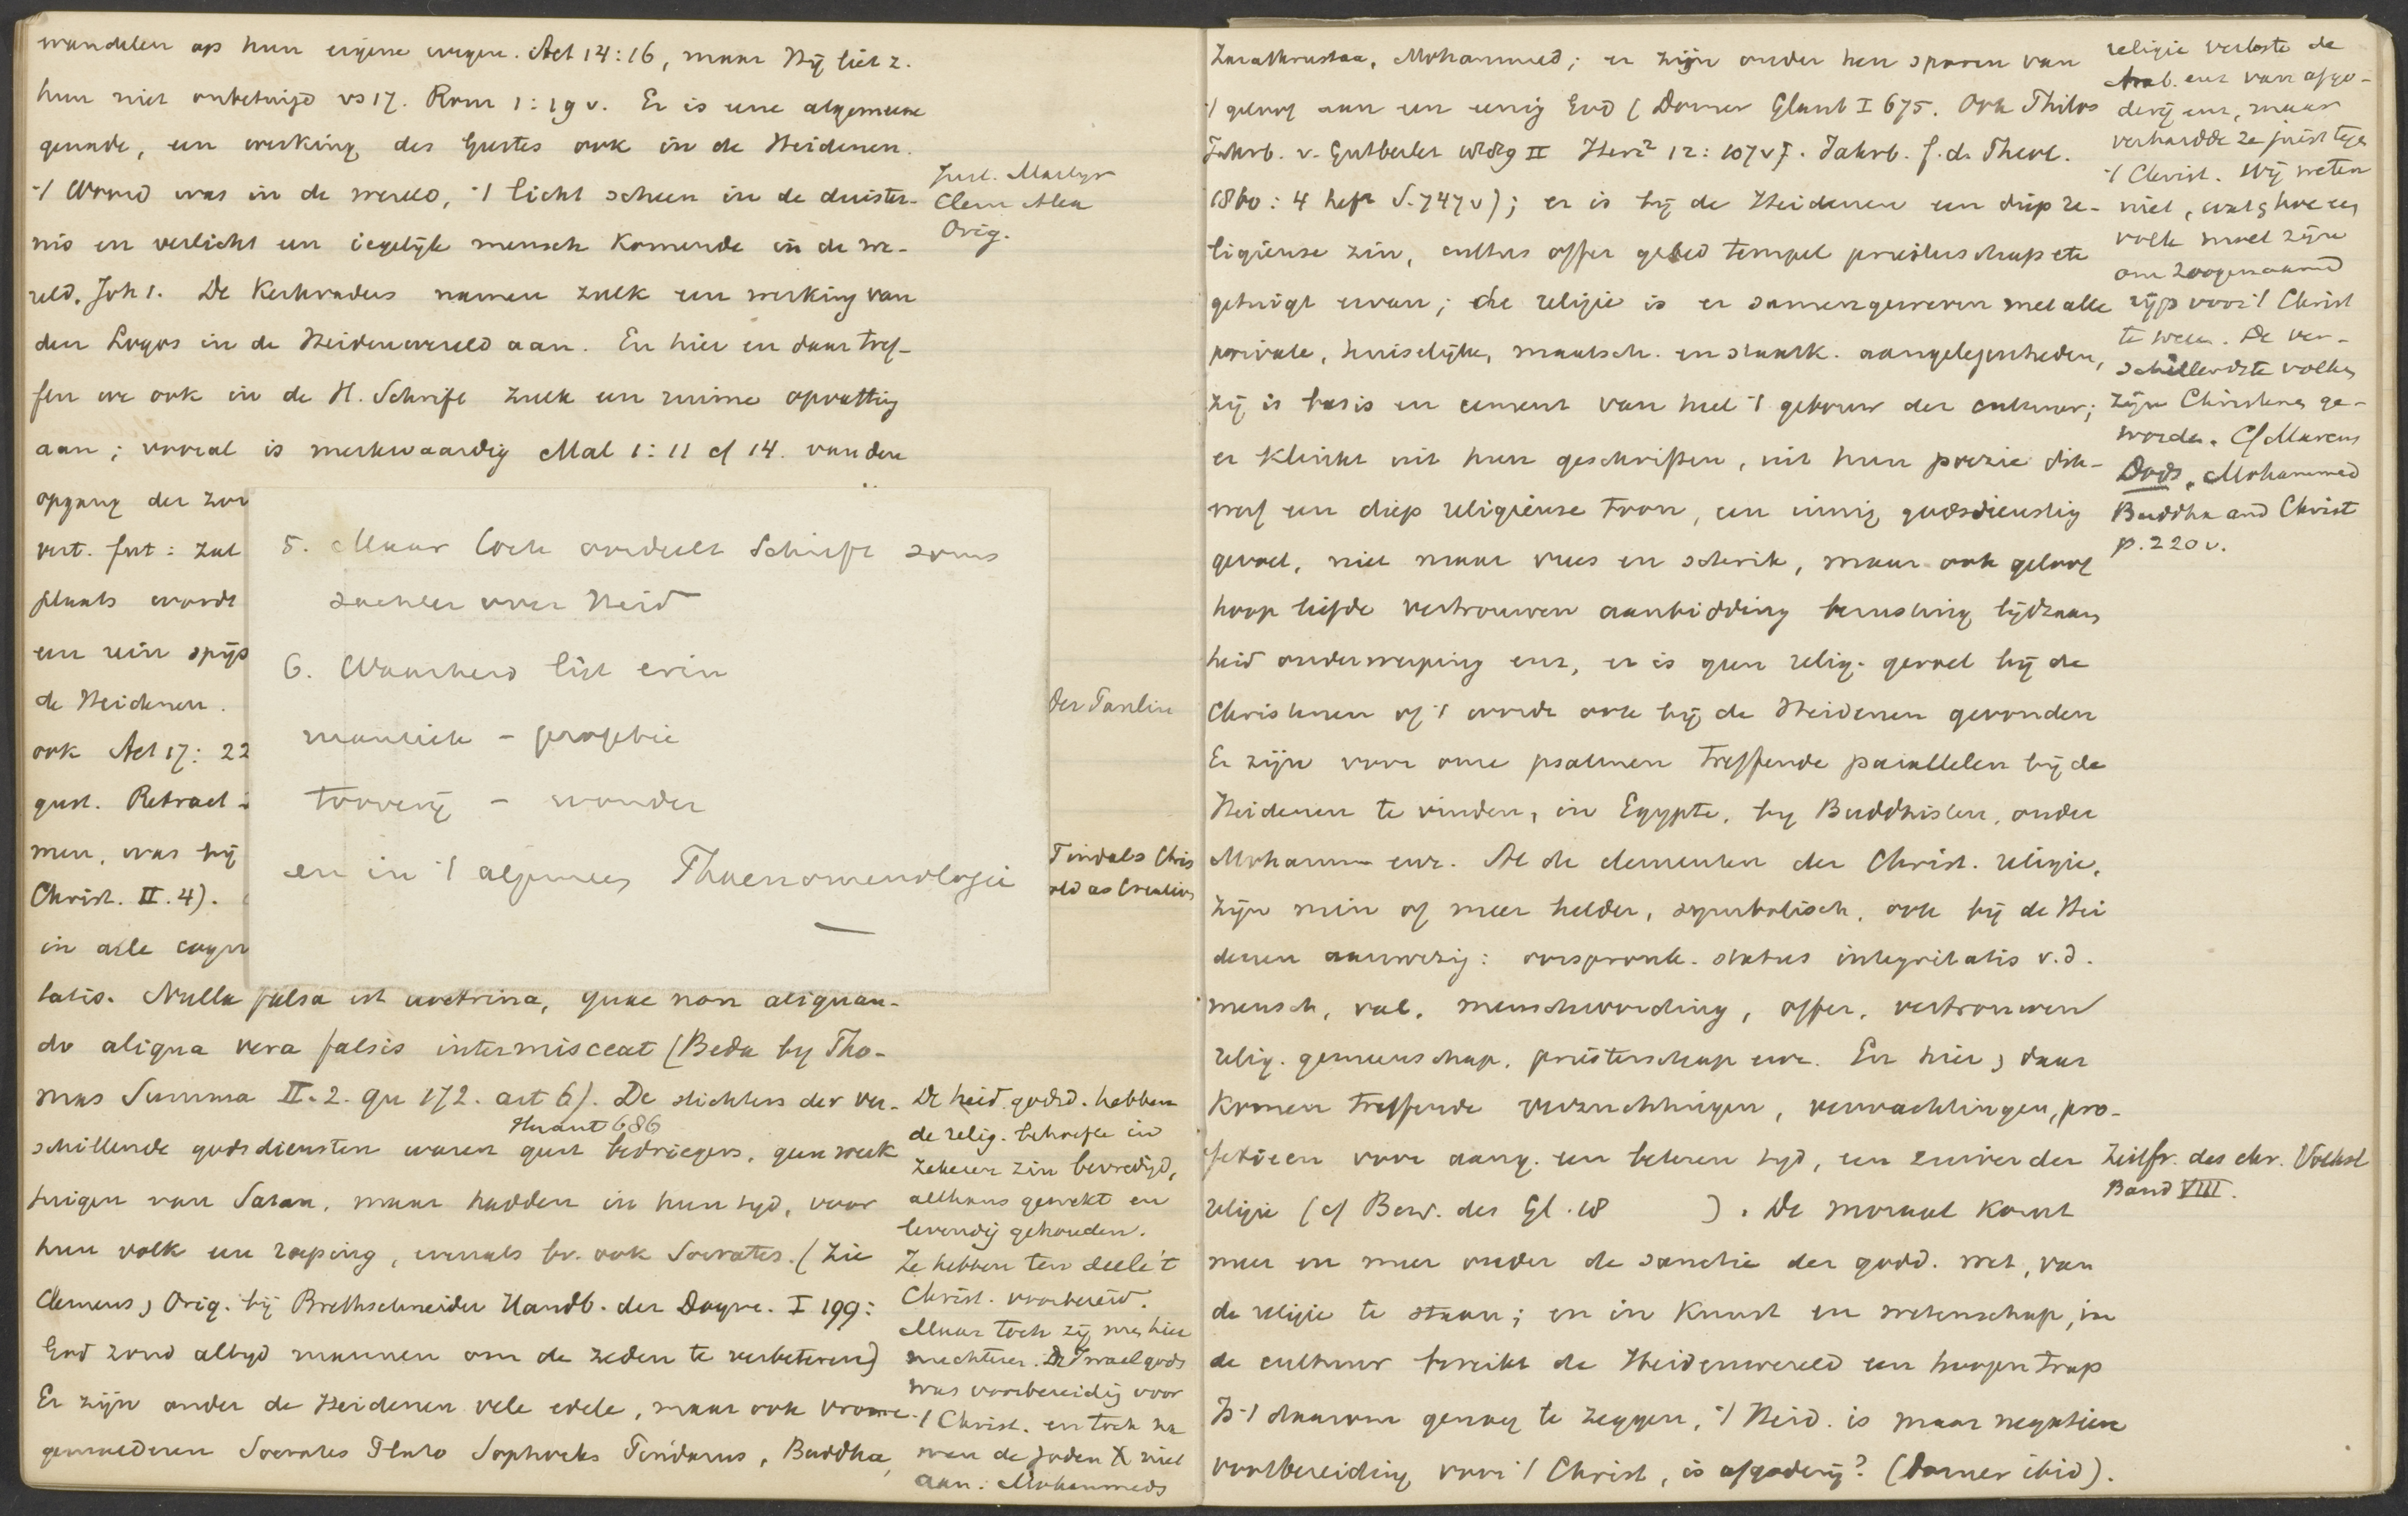 wandelen op hun eigene wegen. Act 14:16, maar Hij liet z.
hun niet onbetuigd vs 17. Rom 1:19 v. Er is eene algemeene
genade, een werking des Geestes ook in de Heidenen.
't Woord was in de wereld, 't licht scheen in de duister-
nis en verlicht een iegelijk mensch komende in de we-
reld, Joh 1. De Kerkvaders namen zulk een werking van
den Logos in de Heidenwereld aan. En hier en daar tref-
fen we ook in de H. Schrift zulk een ruime opvatting
aan; vooral is merkwaardig Mal 1:11 cf 14. van den
opgang der zon
vert. fut: zal
plaats wordt
een rein spijs
de Heidenen.
ook Act 17: 22
gust. Retract.
men, was bij
Christ. II. 4).
in alle
tatis. Nulla falsa est doctrina, quae non aliquan-
do aliqua vera falsis intermisceat (Beda by Tho-
mas Summa II. 2. qu 172. art 6). De stichters der ver-
schillende godsdiensten waren geen bedriegers, geen werk
tuigen van Satan, maar hadden in hun tyd, voor
hun volk een roeping, evenals bv. ook Socrates. (Zie
Clemens, Orig. bij Bretschneider Handb. der Dogm. I 199:
God zond altyd mannen om de zeden te verbeteren)
Er zijn onder de Heidenen vele edele, maar ook vrome
gemoederen Socrates Plato Sophocles Pindarus, Buddha,
Just. Martyr
Clem Alex
Orig.
5. Maar toch oordeelt Schrift soms
zachter over Heid
6. Waarheid ligt erin
mantiek - profetie
tooverij - wonder
en in 't algemeen Phaenomenologie
der Paulin
Tindals Chris
old as Creation
Huart 686
De heid. godsd. hebben
de relig. behoefte in
zekeren zin bevredigd,
althans gewekt en
levendig gehouden.
Ze hebben ten deele 't
Christ. voorbereid.
Maar toch zij men hier
nuchteren. De Israel gods
was voorbereidig voor
't Christ. en toch na
men de Joden X niet
aan. Mohammeds
Zarathrustra, Mohammed; er zijn onder hen sporen van
't geloof aan een eenig God (Dorner Glaub I 675. Ook Philos
Jahrb. v. Gutberlet II Herz² 12: 107 v. Jahrb. f. d. Theol.
1860: 4 heft S. 747 v); er is bij de Heidenen een diep re-
ligieuse zin, cultus offer gebed tempel priesterschap etc
getuigt ervan; die religie is er samengeweven met alle
private, huiselijke, maatsch. en staatk. aangelegenheden,
zij is basis en cement van heel 't gebouw der cultuur;
er klinkt uit hun geschriften, uit hun poezie dik-
werf een diep religieuse toon, een innig godsdienstig
gevoel, niet maar vrees en schrik, maar ook geloof
hoop liefde vertrouwen aanbidding berusting lijdzaam
heid onderwerping enz, er is geen relig. gevoel bij de
Christenen of 't wordt ook bij de Heidenen gevonden
Er zijn voor onze psalmen treffende parallelen bij de
Heidenen te vinden, in Egypte, by Buddhisten, onder
Mohamm enz. Al de elementen der Christ. religie,
zijn min of meer helder, symbolisch, ook bij de Hei
denen aanwezig: oorspronk. status integritatis v.d.
mensch, val, menschwording, offer, vertrouwen
relig. gemeenschap, priesterschap enz. En hier, daar
komen treffende verzuchtingen, verwachtingen, pro-
fetieen voor aang. een beteren tyd, een zuiverder
religie (cf Bew. des Gl. 18 ). De moraal komt
meer en meer onder de sanctie der godd. wet, van
de religie te staan; en in kunst en wetenschap, in
de cultuur bereikt de Heidenwereld een hoogen trap
Is 't daarom genoeg te zeggen, 't Heid. is maar negatieve
voorbereiding voor 't Christ, is afgoderij? (Dorner ibid).
religie verloste de
Arab. enz van afgo-
derij enz, maar
verhardde ze juist tegen
't Christ. Wij weten
niet, wat, hoe een
volk moet zijn
om zoogenaamd
rijp voor 't Christ
te wezen. De ver-
schillendste volken
zijn Christenen ge-
worden. Cf Marcus
Dods, Mohammed
Buddha and Christ
p. 220 v.
Zeitfr. des chr. Volksl
Band VIII.